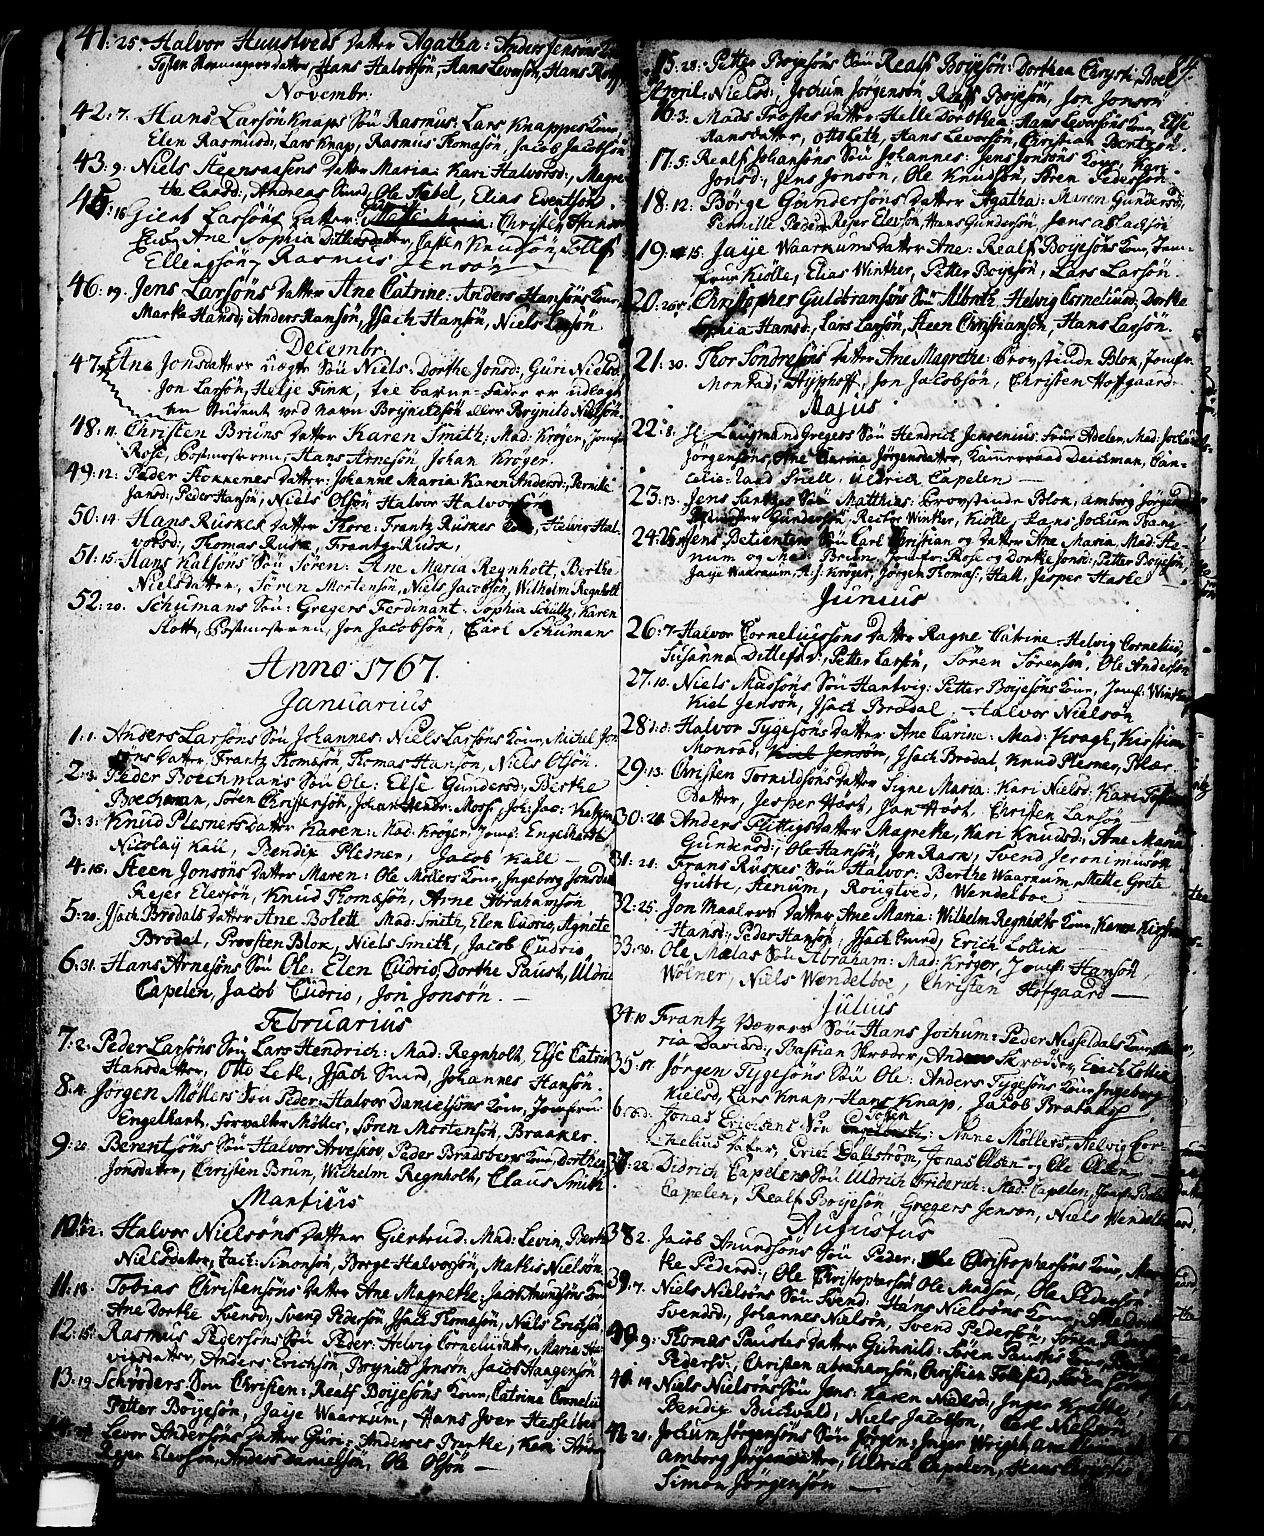 41: 25. Halvor Huustveds datter Agatha: Anders Jensøns
datter, Hans Halvorsøn, Hans Levorsøn, Hans
Novembr.
42: 7. Hans Larsøn Knaps Søn Rasmus: Lars Knappes Kone,
Elen Rasmusd:, Lars Knap, Rasmus Thomasøn, Jacob Jacobsøn
43: 9. Niels Steensaasens datter Maria: Kari Halvorsd:, Magre-
the Larsd:, Andreas Smed, Ole Isabel, Elias Evertsøn.
45: 16 Giert Larsøns datter: Christen
Ane Sophia Ditlefsdatter, Justen Knudsøn, Ellef
Ellensøn, Rasmus Jensøn
46: 19. Jens Larsøns datter Ane Catrine: Anders Hansøns Kone,
Marte Hansd, Anders Hansøn, Isach Hansøn, Niels Larsøn
Decembr.
47. Ane Jonsdatter uægte Søn Niels: Dorthe Jonsd: Guri Nielsd,
Jon Larsøn, Helje Fink, til barne-fader er udlagt
en Student ved navn Brynildsøn eller Brynild Nielsøn.
48: 11. Christen Bruns datter Karen Smith: Mad: Krøyer, Jomfr
Rose, Postmesteren, Hans Arnesøn, Johan Krøyer.
49: 12: Peder datter: Johanne Maria: Karen Andersd:, Pernille
Jansd:, Peder Hansøn, Niels Olsøn Halvor Halvorsøn
50: 14. Hans Ruskes datter Thore: Frantz Ruskes Kone, Helvig Hal-
vorsd:, Thomas Rusk, Frantz Rusk,
51: 15: Hans Kalsøns Søn Søren: Ane Maria Regnholt, Berthe
Nielsdatter, Søren Mortensøn, Niels Jacobsøn, Wilhelm Regnholt
52: 20. Schumans Søn: Gregers Ferdinant: Sophia Schultz, Karen
Flott, Postmesteren, Jon Jacobsøn, Carl Schumans
Anno 1767.
Januarius
1: 1. Anders Larsøns Søn Johannes: Niels Larsøns Kone, Michel Jon
søns Datter, Frantz Thomasøn, Thomas Hansøn, Niels Olsøn.
2: 3. Peder Boechmans Søn Ole: Else Gundersd:, Berthe
Boechman, Søren Christensøn, Johan Moss, Joh: Jac:
3: 3: Knud Plesners datter Karen: Mad: Krøyer, Jomf: Engelhardt
Nicolaÿ Kall, Bendix Plesner, Jacob Kall —
4: 16. Steen Jonsøns datter Maren: Ole Møllers Kone, Ingeborg Jonsdatt
Rejer Elessøn, Knud Thomasøn, Arne Abrahamsøn
5: 20. Isach Brødals datter Ane Bolett Mad: Smith, Elen Cudrio, Agnete
Brødal, Provsten Blok, Niels Smith, Jacob Cudrio,
6: 31. Hans Arnesøns Søn Ole: Elen Cudrio, Dorthe Paust, Uldric
Capelen, Jacob Cudrio, Jon Jonsøn. —
Februarius
7: 2: Peder Larsøns Søn Lars Hendrich: Mad: Regnholt, Else Catrin
Hansdatter, Otto Leth, Isach Smed, Johannes Hansøn.
8: 11. Jørgen Møllers Søn Peder: Halvor Danielsøns Kone, Jomfru
Engelhart, Forvalter Møller, Søren Mortensøn, Braaker.
9: 20. Berentsøns Søn Halvor Arveskov, Peder Bradsbergs Kone, Dorthea
Jonsdatter, Christen Brun, Wilhelm Regnholt, Claus Smith
Martius
10: 12. Halvor Nielsøns datter Giertrud: Mad: Levin, Berthe
Nielsdatter, Zach: Simonsøn, Børge Halvorsøn, Mathis Nielsøn
11: 18. Tobias Christensøns datter Ane Magrethe: Jacob Knudsøns Kone
Ane Dorthe Svensd, Svend Pedersøn, Isach Thomasøn, Niels Erichsøn
12: 15: Rasmus Pedersøns Søn Peder: Helvig Corneliidatter, Maria
datter, Anders Erichsøn, Brynild Jensøn, Jacob Haagensøn
13: 19 Schrøders Søn Christen: Realf Boyesøns Kone, Catrina Cornelius
Petter Boyesøn, Jaÿe Waarnum, Hans Iver Hesselber
Levor Andersøns datter Guri: Anderses Kari Anders
Rejer Elevsøn, Anders Danielsøn, Ole Olsøn —
84.
15: 28. Petter Boyesøns Søn Realf Boyesøn: Dorthea Chrysti Boel
April: Nielsd:, Jochum Jørgensøn, Realf Boyesøn, Jon Jonsøn
16: 3: Mads Trostes datter Helle Dorthea: Hans Levorsøns Kone, Else
Hansdatter, Otto Leth, Hans Levorsøn, Christian Bentzøn.
17: 5: Realf Johansøns Søn Johannes: Jens Jonsøns Kone, Kari
Jonsd:, Jens Jonsøn, Ole Knudsøn, Søren Pedersøn.
18: 12: Børge Gundersøns datter Agatha: Maren Gundersd:
Pernille Pedersd, Rejer Elesøn, Hans Gundersøn, Jens
19: 15. Jaÿe Waarnums datter Ane: Realf Boyesøns Kone, Jom-
frue Kiølle, Elias Winther, Petter Boyesøn, Lars Larsøn.
20: 26. Christopher Guldbransøns Søn Albreth: Helvig Cornelius, Dorthe
Sophia Hansd:, Lars Larsøn, Steen Christiansøn, Hans Larsøn.
21: 30. Thor Sondresøns datter Ane Magrethe: Provstinde Blok, Jomfr
Monrad, Hyphoff, Jon Jacobsøn, Christen Hofgaard.
Majus
22: 8. Hr. Laugmand Gregers Søn Hendrich Jensenius: Frue Adeler, Mad: Jochum
Jørgensøns, Ane Carina Jørgensdatter, Kammerraad Deichman, Can-
celie-raad Friell, Uldrich Capelen —
23: 13. Jens Søn Matthias: Provstinde Blok, Amborg Jørgens
Gundersøn, Rector Winther, Kiølle, Hans Jochum Bang
24: 25. Jens Betienters Søn Carl Christian og datter Ane Maria, Mad: He-
num og Mad: Brun, Jomfru Rose og Dorthe Jonsd: Petter Boyesøn,
Jaÿe Waarnum, A: J: Krøyer, Jørgen Thomas: Hall, Jesper Haste
Junius
26: 7. Halvor Corneliussøns datter Ragne Catrine Helvig Cornelius,
Susanna Ditlefsd:, Petter Larsøn, Søren Sørensøn, Ole Andersøn
27: 10. Niels Madsøns Søn Hantvig: Petter Boyesøns Kone, Jomf: Winther
Kiel Jensøn, Isach Brødal, Halvor Nielsøn
28: d: d: Halvor Tygesøns datter Ane Carine: Mad: Kragh, Kirstine
Monrad, Isach Brødal, Knud Plesner, Peder
29: 13. Christen Tornildsøns datter Signe Maria: Kari Nielsd: Kari
Datter, Jesper Høst, Jan Høst, Christen Larsøn —
30: 20. Anders Flittigs datter Magrethe, Kari Knudsd:, Ane Maria
Gundersd:, Ole Hansøn, Jon Rask, Svend Jeronimusøn
31: 21. Frans Ruskes Søn Halvor: Berthe Waarnum, Mette Grete
Grubbe, Stenum, Rougtved, Wendelboe —
32: 25. Jon Maalers datter Ane Maria: Wilhelm Regnholts Kone, Karen
Hansd:, Peder Hansøn, Isach Smed, Erich Lollik
33: 30. Ole Mælas Søn Abraham: Mad: Krøyer, Jomf: Hansøn
Wølner, Niels Wendelboe, Christen Hofgaard —
Julius
34 10 Frantz Vævers Søn Hans Jochum: Peder Nisseldals Kone,
ria Davidsd:, Bastian Skrøder, Anders Skrøder, Erich Lollik
35: 17. Jørgen Tygesøns Søn Ole: Anders Tygesøns Kone, Ingeborg
Nielsd, Lars Knap, Hans Knap, Jacob
6 Jonas Erichsens Søn Johan: Anne Møllers, Helvig Cor-
nelius datter, Erich Dahlstrøm, Jonas Olsen og Ole Olsen
37: 22: Didrich Capelens Søn Uldrich Friderich: Mad: Capelen, Jomfr:
Capelen, Realf Boyesøn, Gregers Jensøn, Niels Wendelboe
Augustus
38 2. Jacob Amundsøns Søn Peder: Ole Christophersøns Kone, Mar-
the Pedersd:, Ole Christophersøn, Ole Madsøn, Ole Pedersøn
39: 7. Niels Nielsøns Søn Svend: Hans Nielsøns Kone,
Svendsd, Johannes Nielsøn, Svend Pedersøn, Søren
40: 9: Thomas Paustes datter Gunnild: Søren Paustes Kone,
Pedersd:, Christen Abrahamsøn, Christen Tollefsø, Søren
41: 14 Niels Nielsøns Søn Jens: Karen Nielsd:, Inger
Bendix Buchvald, Niels Jacobsøn, Carl Nielsøn
42: 20. Jochum Jørgensøns Søn Jørgen: Inger Wright,
Amborg Jørgensdatter, Uldrich Capelen, Hans
Simon Jørgensøn —